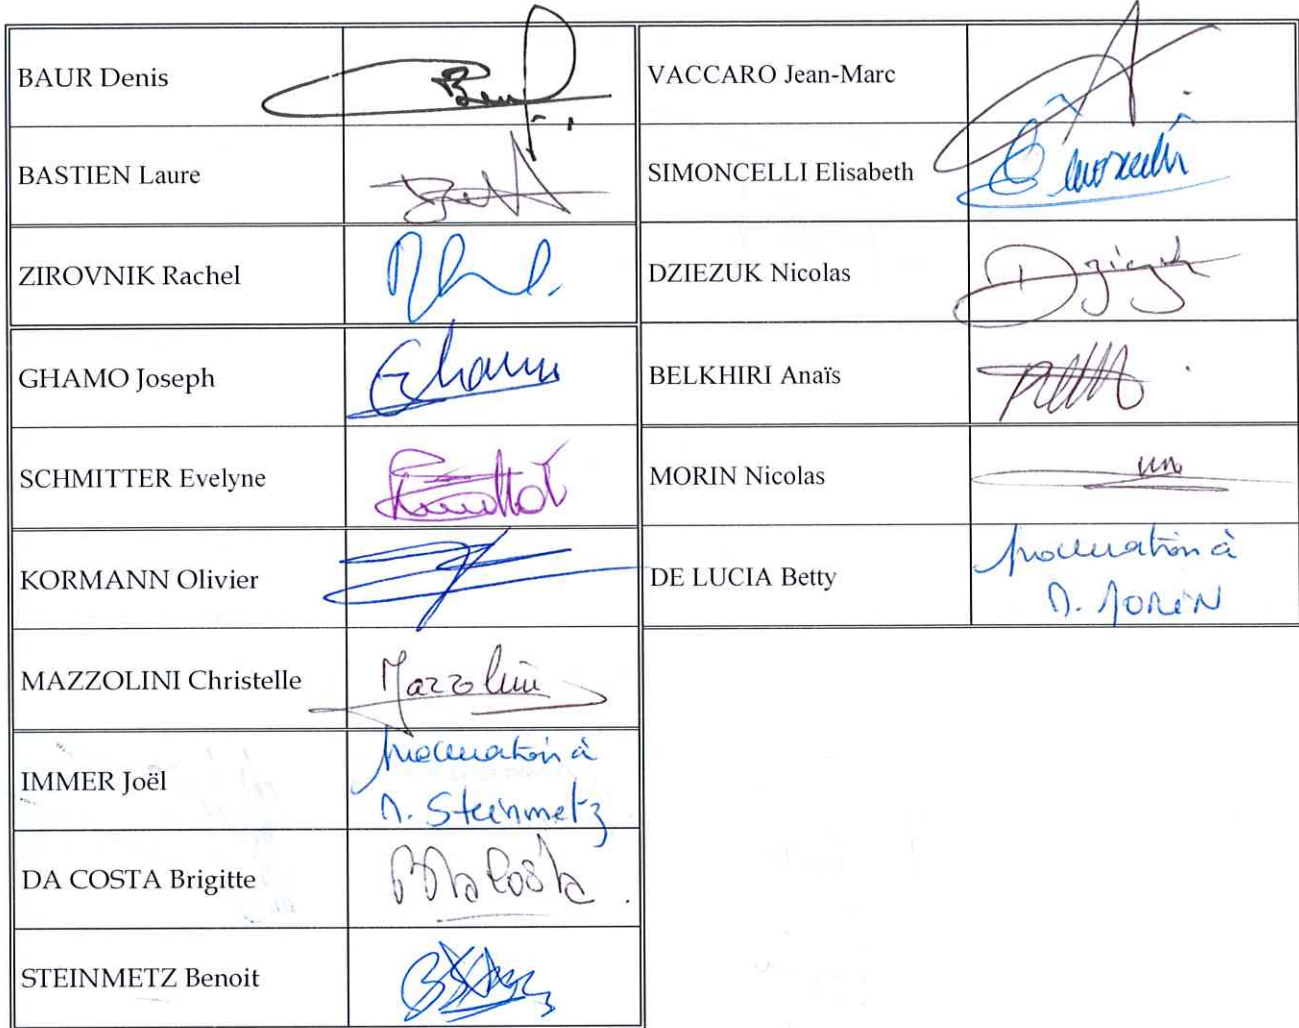 BAUR Denis
BASTIEN Laure
ZIROVNIK Rachel
GHAMO Joseph
Ghamo
SCHMITTER Evelyne
KORMANN Olivier
MAZZOLINI Christelle
Mazzolini
IMMER Joël
procuration à
M. Steinmetz
DA COSTA Brigitte
STEINMETZ Benoit
VACCARO Jean-Marc
SIMONCELLI Elisabeth
DZIEZUK Nicolas
BELKHIRI Anaïs
MORIN Nicolas
DE LUCIA Betty
procuration à
M. MORIN